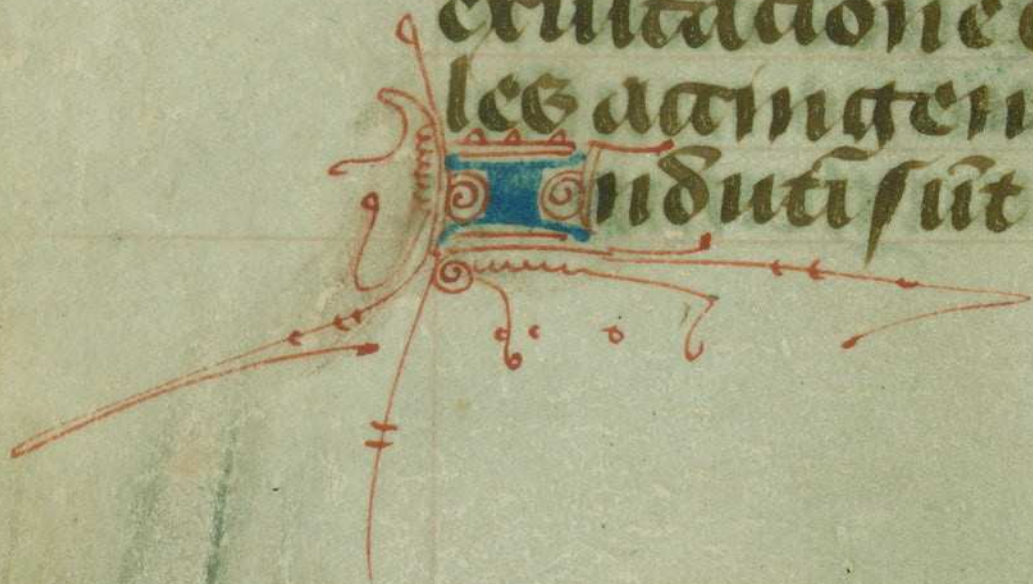 exultatione
les accingen
Induti sūt